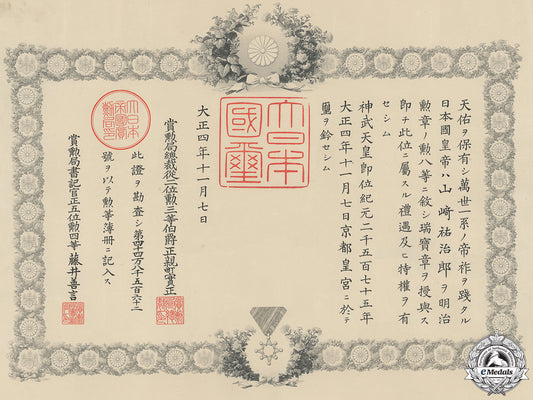 天佑ヲ保有シ萬世一系ノ帝祚ヲ踐タル
日本國皇帝ハ山﨑祐治郎ヲ明治
勲章ノ勲八等ニ敘シ瑞寶章ヲ授與ス
即チ此位ニ屬スル禮遇及ヒ特權ヲ有
セシム
神武天皇即位紀元二千五百七十五年
大正四年十一月七日京都皇宮ニ於テ
璽ヲ鈐セシム
大日本國璽
大正四年十一月七日
賞勲局總裁從二位勲三等伯爵正親町實正
此證ヲ勘査シ第四十四万八千五百六十二
號ヲ以テ勲等簿册ニ記入ス
賞勲局書記官正五位勲四等藤井善言
eMedals